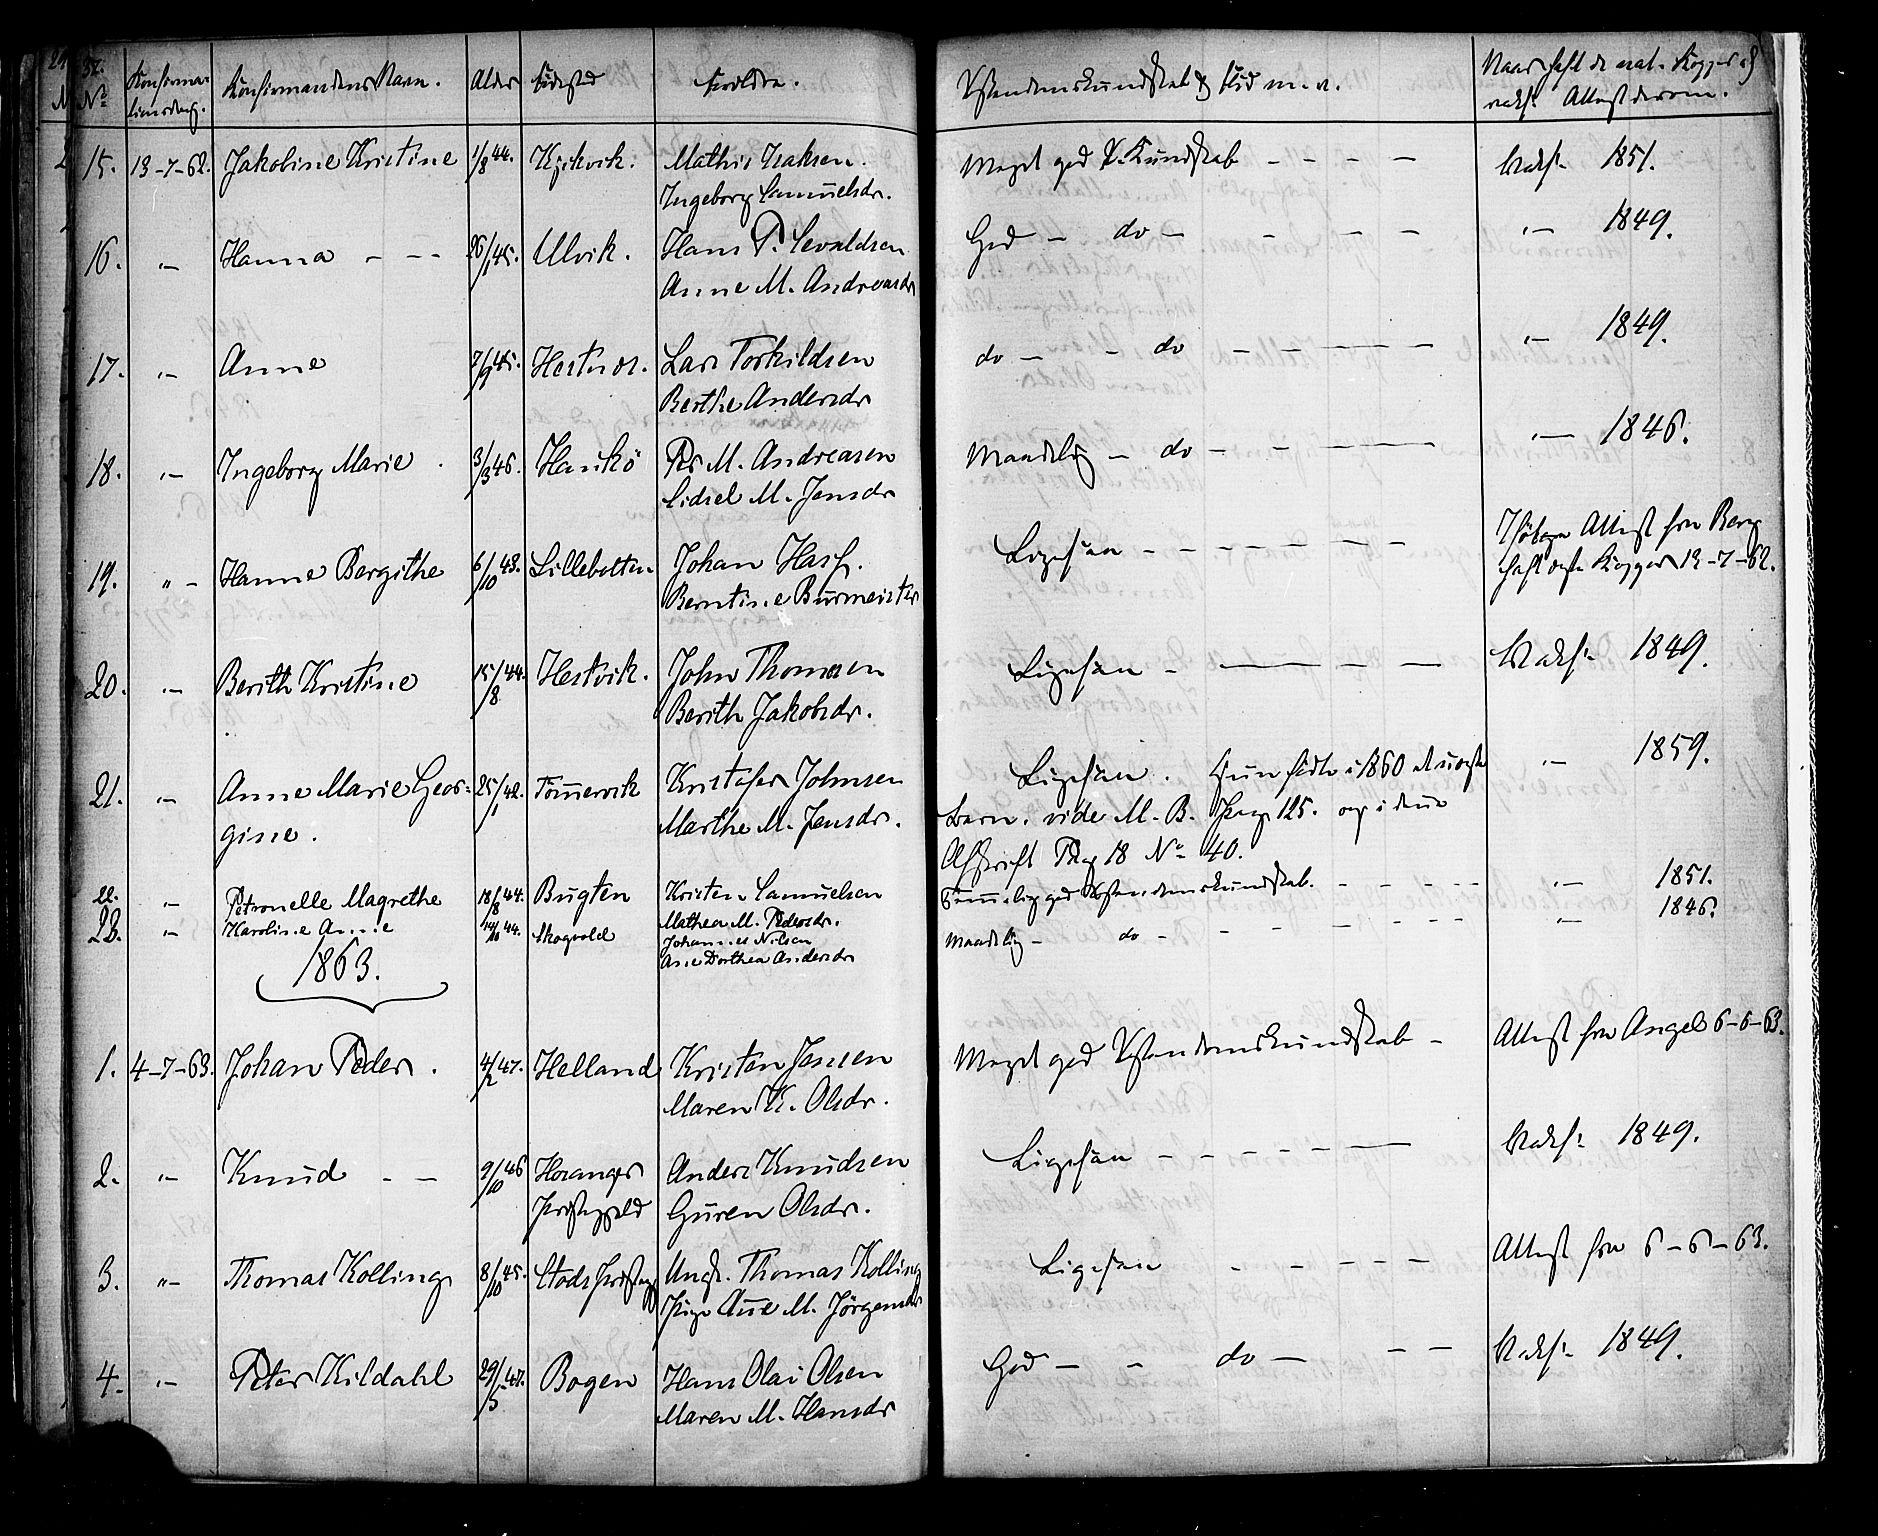 32.
No Konfirma- Konfirmandens Navn. Alder Födested Forældre. Kristendomskundskab & Flid m. v. Naar haft de nat. Kopper og
tionsdag. vakc. Attest derom.
15. 13-7-62. Jakobine Kristine 1/8 44. Kjeikvik. Mathis Isaksen. Meget god K. Kundskab - - - - Vakc. 1851.
Ingeborg Samuelsdr.
16. "- Hanna - - - 26/1 45. Ulvik. Hans P. Sevaldsen God - do - - - - "- 1849.
Anne M. Andreasdr
17. "- Anne 7/9 45. Hestnes. Lars Torkildsen do - - do - - - - - "- 1849.
Berthe Andersdr
18. "- Ingeborg Marie. 3/3 46. Haukö Peder M. Andreasen Maadelig - do - - - - "- 1846.
Sidsel M. Jensdr
19. "- Hanne Bergithe 6/10 43. Lillebotten Johan Hass. Ligesaa - - - - - - - Ifölge Attest fra Berg
Berntine Burmeister haft Kopper 13-7-62.
20. "- Berith Kristine 15/8 44. Hestvik. John Thomesen Ligesaa - - - - Vakc. 1849.
Berith Jakobsdr.
21. "- Anne Marie Geor- 25/1 42. Tömmervik Kristofer Johnsen Ligesaa. Hun födte i 1860 et uægte "- 1859.
gine. Marthe M. Jensdr. Barn, vide M. B. Pag. 125. og i denne
Afskrift Pag 18 No 40.
22. "- Petronelle Magrethe 18/8 44. Bugten Kristen Samuelsen Temmelig god Kristendomskundskab. - - - - "- 1851.
Mathea M. Pedersdr.
23. "- Karoline Anne 14/10 44. Skogvold Johannes Nilsen Maadelig - do - - - - - "- 1846.
Ane Dorthea Andersdr
1863.
1. 4-7-63. Johan Peder. 4/2 47. Helland Kristen Jensen Meget god Kristendomskundskab - Attest fra Angel 6-6-63.
Maren K. Olsdr.
2. "- Knud - - 9/10 46 Horanger Anders Knudsen Ligesaa - - - - - - Vakc. 1849.
Prestegjeld Guren Olsdr.
3. "- Thomas Kolling 8/10 45. Stods Presteg Ungk. Thomas Kolling Ligesaa - - - - - Attest fra 6-6-63.
Pige Ane M. Jörgensdr
4. "- Peter Kildahl 29/5 47. Bogen Hans Olai Olsen God - - do - - - Vakc. 1849.
Maren M. Hansdr